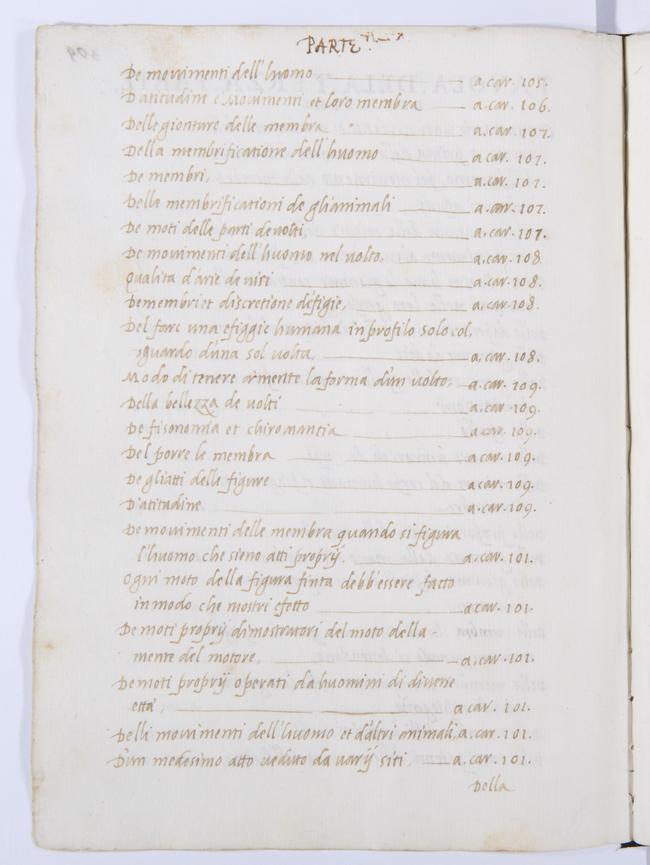 PARTE
De movimenti dell'huomo a car. 105.
D'atitudine e Movimenti et loro membra a. car. 106.
Delle gionture delle membra a. car. 107.
Della membrificatione dell'huomo a. car. 107.
De membri, a. car. 107.
Delle membrificationi de gl'animali a. car. 107.
De moti delle parti de volti, a. car. 107.
De movimenti dell'huomo nel volto, a. car. 108.
Qualita d'arie de visi a. car. 108.
De membri et discretione d'efigie, a. car. 108.
Del farc una efiggie humana in profilo solo col,
sguardo d'una sol volta, a. car. 108.
Modo di tenere a'mente la forma d'un volto, a. car. 109.
Della bellezza de volti a. car. 109.
De fisonomia et chiromantia a. car. 109.
Del porre le membra a. car. 109.
De gl'iatti delle figure a. car. 109.
D'atitadine a. car. 109.
De movimenti delle membra quando si figura
l'huomo che sieno atti proprij. a. car. 101.
Ogni moto della figura finta debb'essere fatto
in modo che mostri efetto a car. 101.
De moti proprij dimostratori del moto della
mente del motore, a. car. 101.
De moti proprij operati da huomini di diverse
etta', a car. 101.
Delli movimenti dell'huomo et d'altri animali, a. car. 101.
D'un medesimo atto veduto da varij siti, a. car. 101.
Della